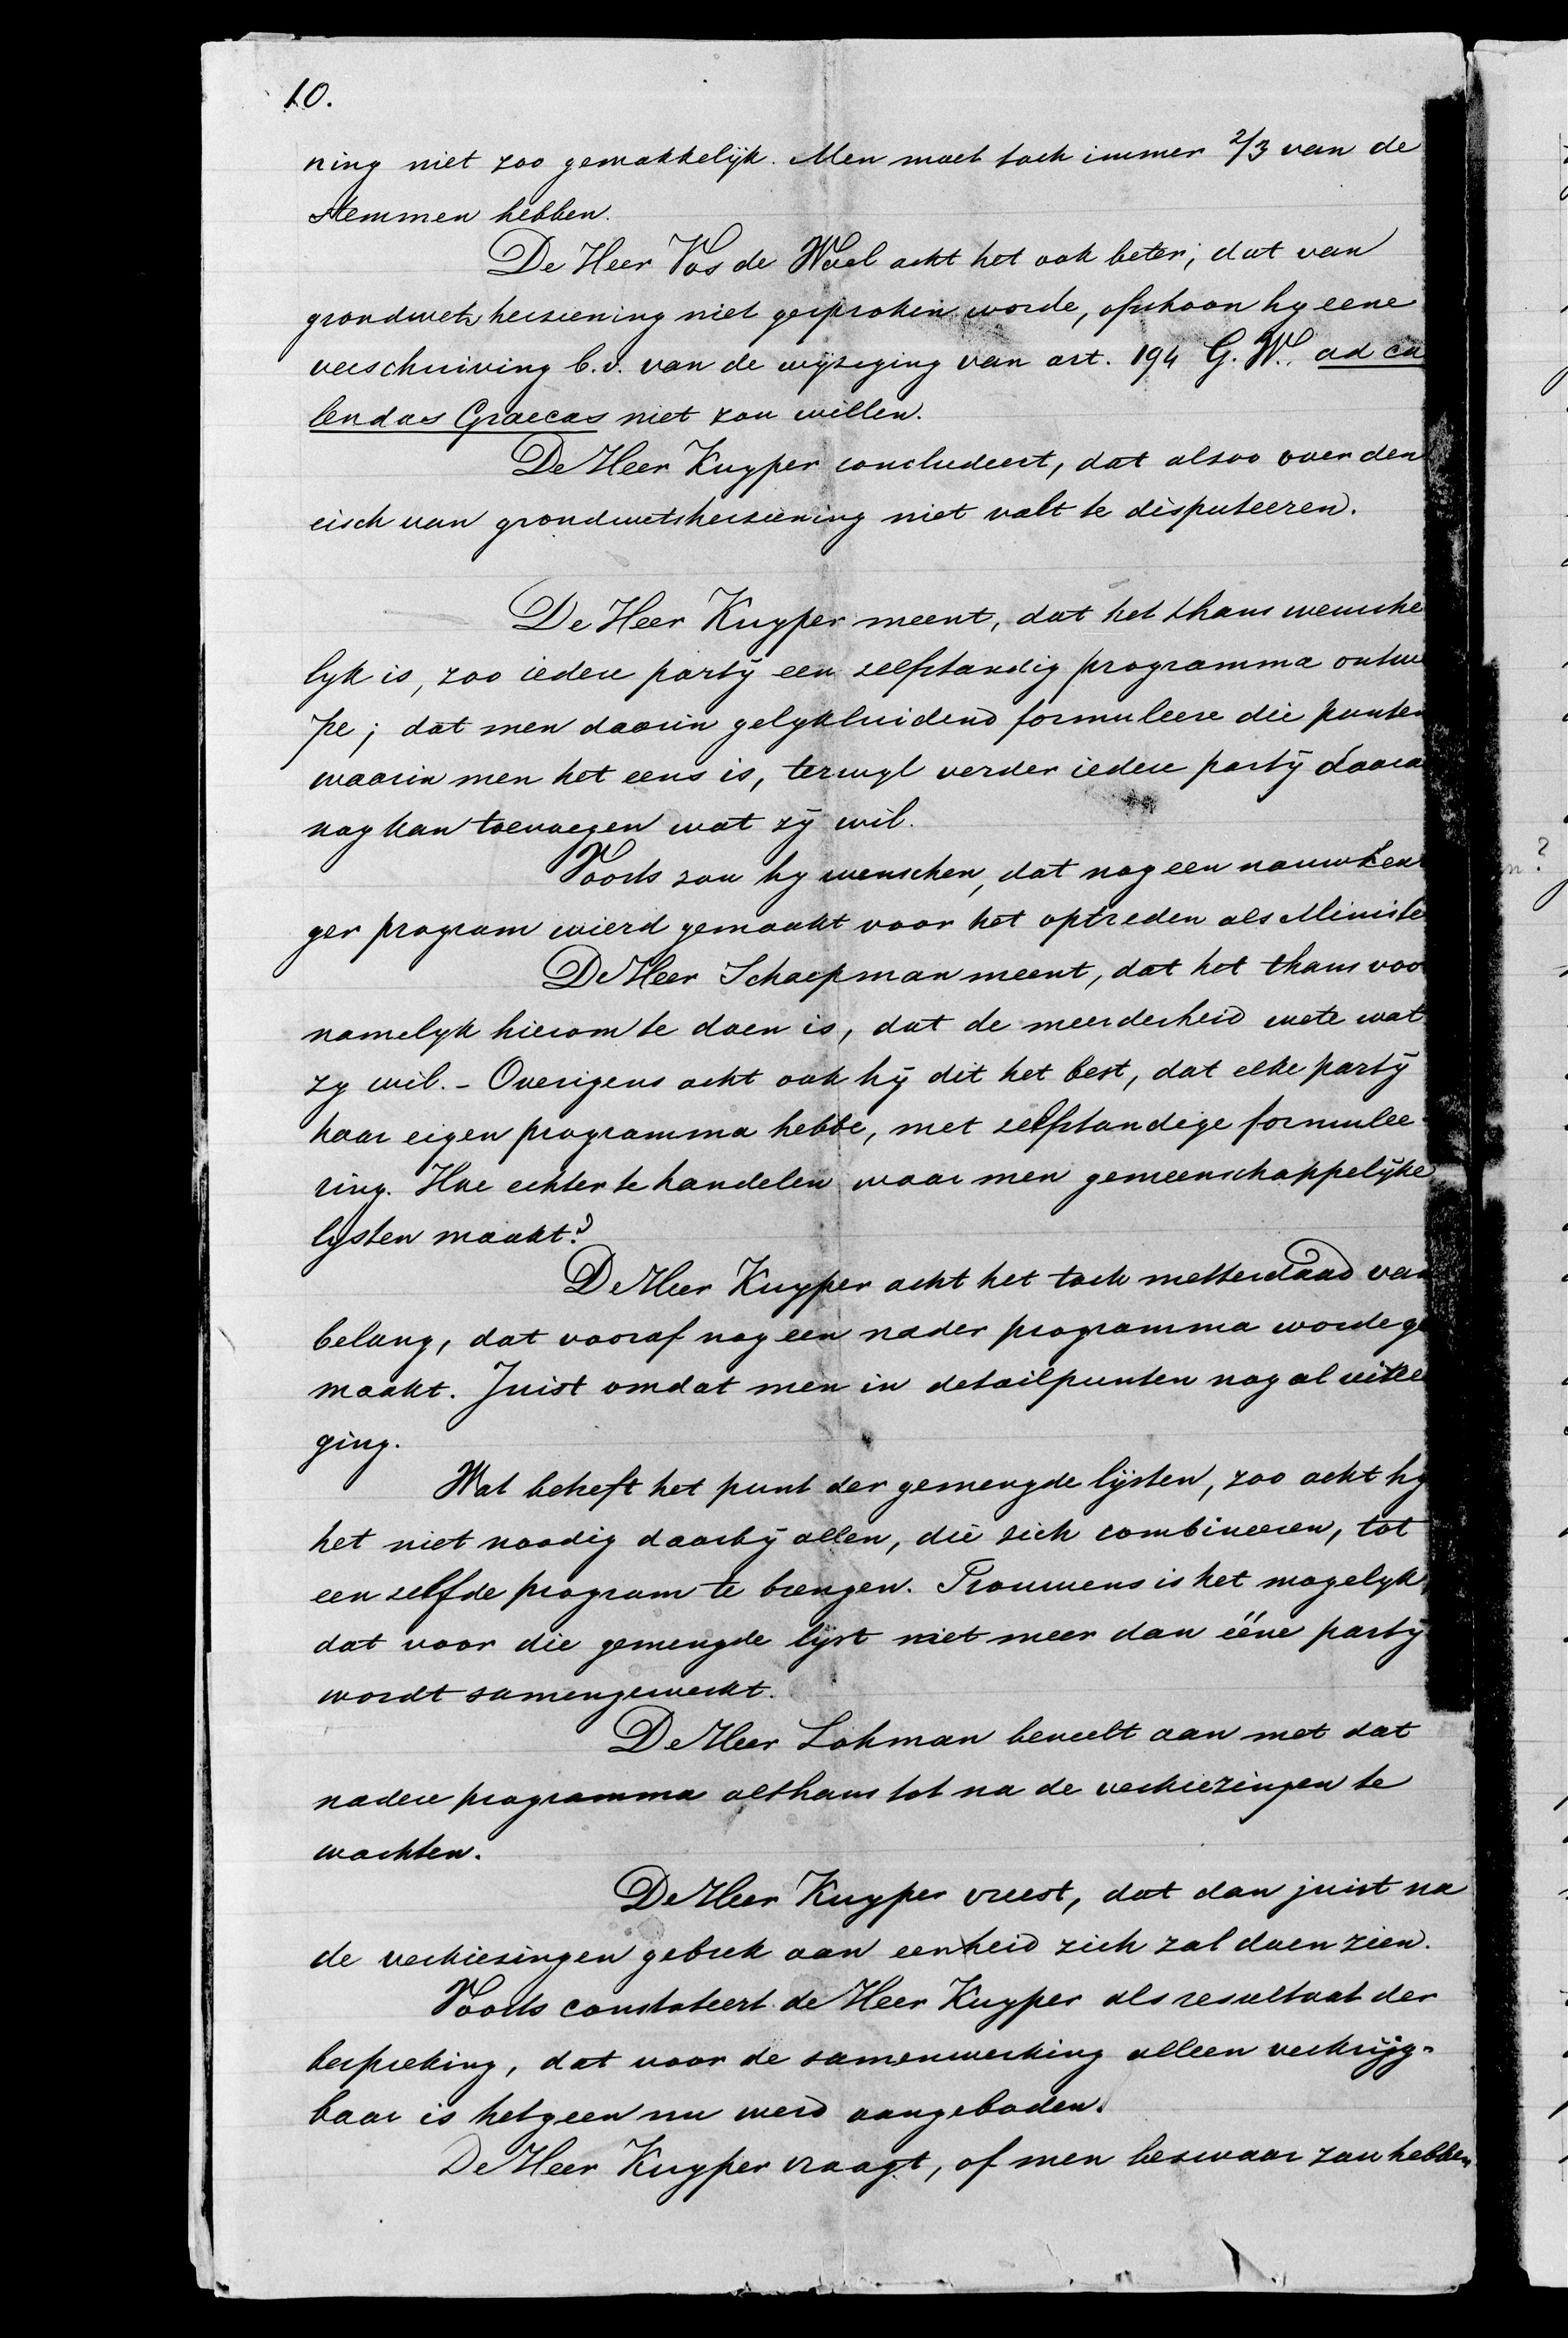 10.
ning niet zoo gemakkelijk. Men moet toch immer 2/3 van de
stemmen hebben.
De Heer Vos de Wael acht het ook beter, dat van
grondwetsherziening niet gesproken worde, ofschoon hy eene
verschuiving b.v. van de wijziging van art. 194 G.W. ad ca
lendas Graecas niet zou willen.
De Heer Kuyper concludeert, dat alzoo over den
eisch van grondwetsherziening niet valt te disputeeren.
De Heer Kuyper meent, dat het thans wensche
lyk is, zoo iedere party een zelfstandig programma ontwe
pe; dat men daarin gelykluidend formuleere die punten
waarin men het eens is, terwyl verder iedere party daara
nog kan toevoegen wat zy wil.
Voorts zou hy wenschen, dat nog een nauwkeu
ger program wierd gemaakt voor het optreden als Ministe
De Heer Schaepman meent, dat het thans voo
namelyk hierom te doen is, dat de meerderheid wete wat
zy wil. - Overigens acht ook hy dit het best, dat elke party
haar eigen programma hebbe, met zelfstandige formulee-
ring. Hoe echter te handelen waar men gemeenschappelyke
lysten maakt?
De Heer Kuyper acht het toch metterdaad van
belang, dat vooraf nog een nader programma worde ge
maakt. Juist omdat men in detailpunten nog al uitee
ging.
Wat betreft het punt der gemengde lijsten, zoo acht hy
het niet noodig daarby allen, die zich combineeren, tot
eenzelfde program te brengen. Trouwens is het mogelyk,
dat voor die gemengde lijst niet meer dan ééne party
wordt samengewerkt.
De Heer Lohman beveelt aan met dat
nadere programma althans tot na de verkiezingen te
wachten.
De Heer Kuyper vreest, dat dan juist na
de verkiezingen gebrek aan eenheid zich zal doen zien.
Voorts constateert de Heer Kuyper als resultaat der
bespreking, dat voor de samenwerking alleen verkrijg-
baar is hetgeen nu werd aangeboden.
De Heer Kuyper vraagt, of men bezwaar zou hebben,